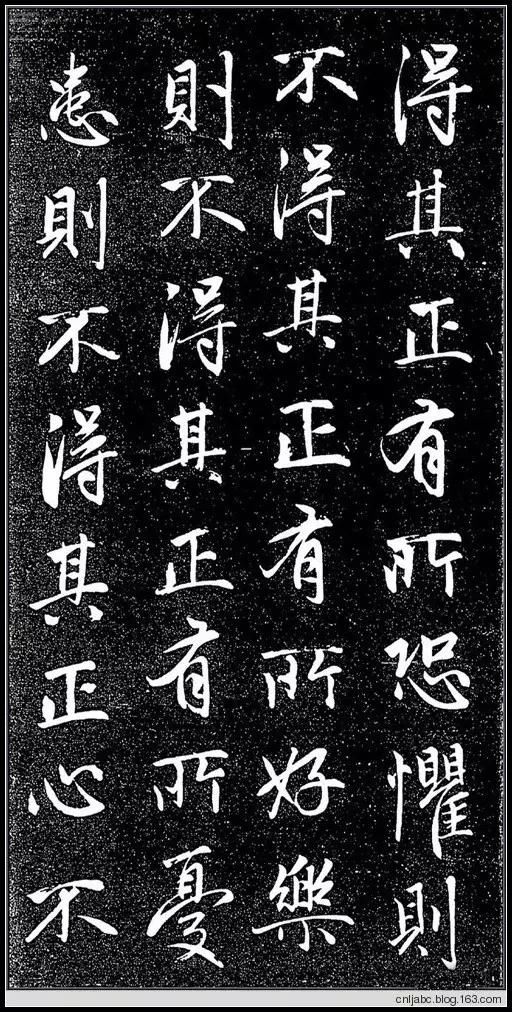 得其正有所恐懼則
不得其正有所好樂
則不得其正有所憂
患則不得其正心不
cnljabc.blog.163.com